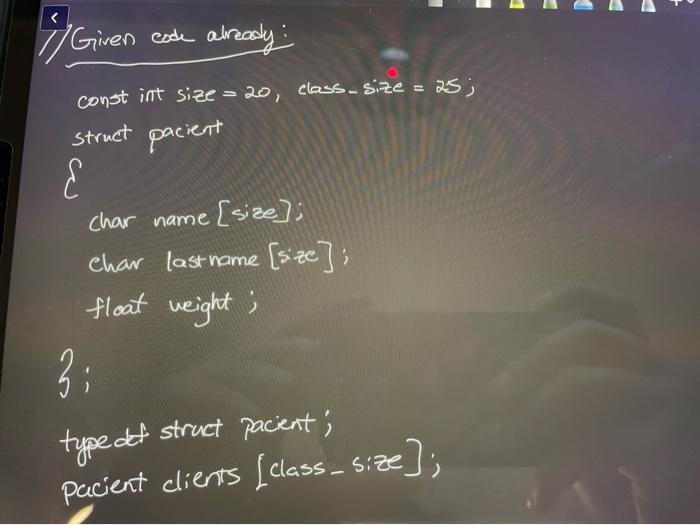 //Given code already:
const int size = 20, class_size = 25;
struct pacient
{
char name [size];
char lastname [size];
float weight;
};
typedef struct pacient;
pacient clients [class_size];